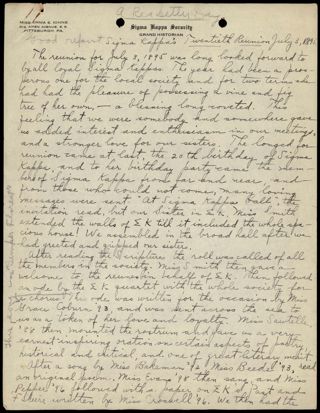 A Red Letter Day
MISS EMMA E. KINNE
PITTSBURGH, PA.
Sigma Kappa Sorority
GRAND HISTORIAN
Sigma Kappa's Twentieth Reunion July 3, 1895
The reunion for July 3, 1895 was long looked forward to
by all loyal Sigma Kappas. The year had been a pros-
perous one for the local society and for two terms she
had had the pleasure of possessing a vine and fig
tree of her own, — a blessing long coveted. This
feeling that we were somebody and somewhere gave
us added interest and enthusiasm in our meetings,
and a stronger love for our sisters. The longed for
reunion came at last, the 20th birthday of Sigma
Kappa, and to her birthday party came the mem-
bers of Sigma Kappa from far and near, and
from those who could not come, many loving
messages were sent. "At Sigma Kappa Hall", the
invitation read, but our sister in Σ.K. Miss Smith
extended the walls of Σ K till it included the whole spa-
cious house! We assembled in the broad hall after we
had greeted and gripped our sisters.
After reading the Scripture the roll was called of all
the members in the society. Miss S. Smith then gave a
welcome to the reunion in behalf of Σ K. Then followed
an ode by the Σ K quartet with the whole society for
a chorus. The ode was written for the occasion by Miss
Grace Coburn '93, and was sent across the sea to
us as a token of her love and loyalty. Miss Sawtelle
'88 then mounted the rostrum and gave us a very
earnest inspiring oration on certain aspects of poetry,
historical and critical, and one of great literary merit.
After a song by Miss Bakeman '9 Miss Beedel '93, read
an original poem. Miss Evans '98 then sang, and Miss
Pepper '96 followed with a paper on Σ K of Past and
Future written by Miss Croswell '96. We then had the